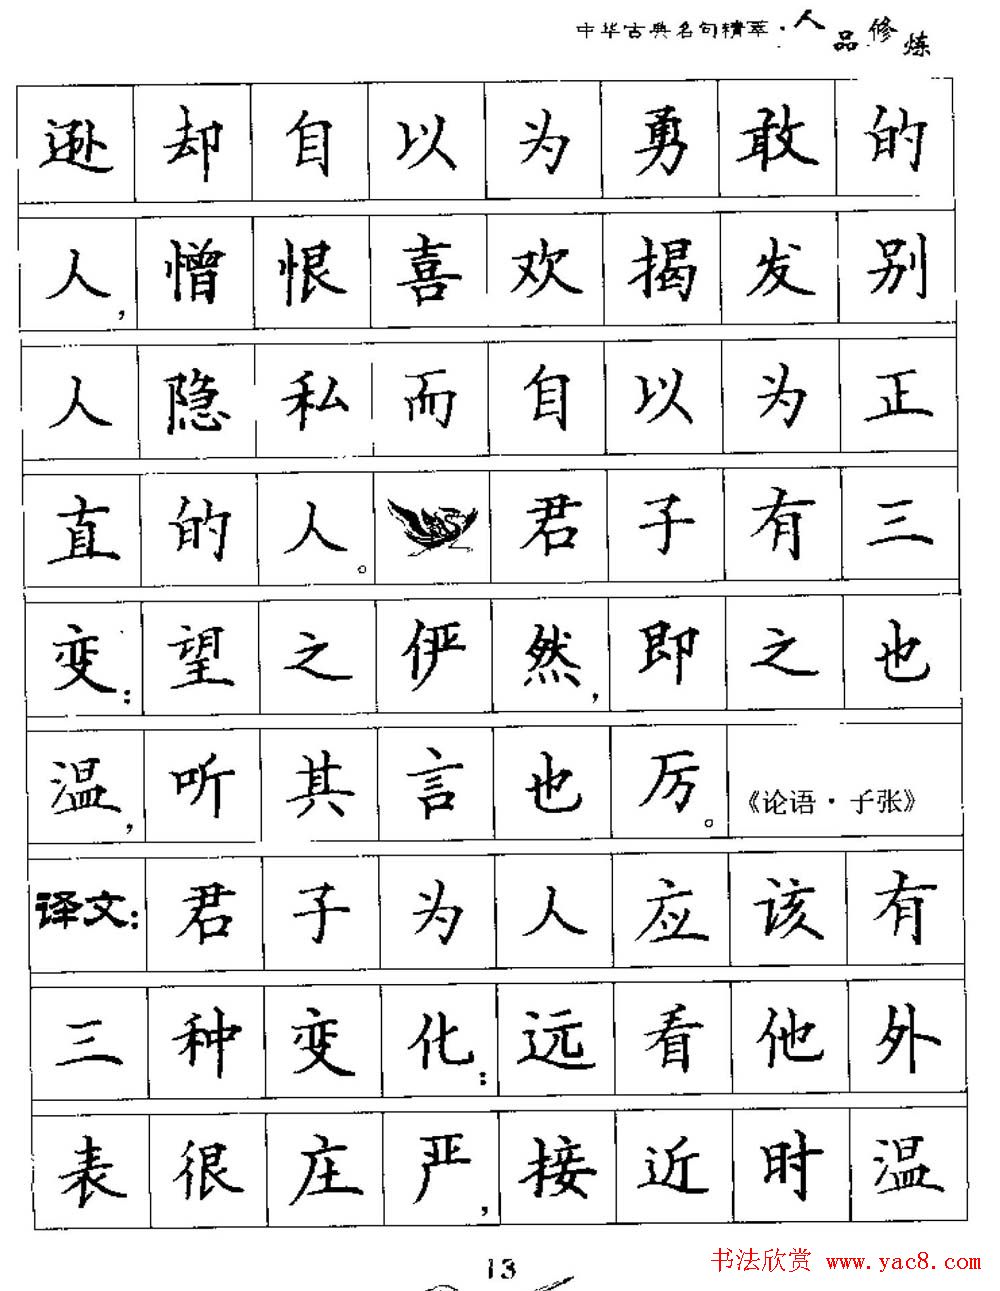 中华古典名句精萃·人品修炼
逊却自以为勇敢的
人,憎恨喜欢揭发别
人隐私而自以为正
直的人。君子有三
变:望之伊然,即之也
温,听其言也厉。《论语·子张》
译文:君子为人应该有
三种变化:远看他外
表很庄严,接近时温
13
书法欣赏 www.yac8.com